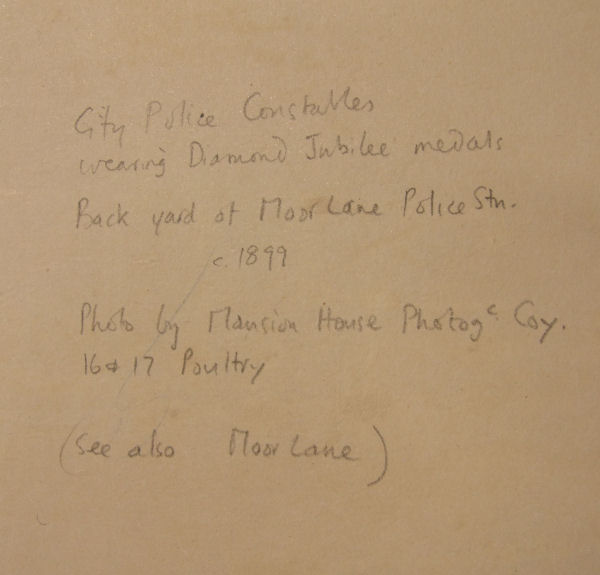 City Police Constables
wearing Diamond Jubilee medals
Back yard of Moor Lane Police Stn.
c. 1899
Photo by Mansion House Photogc. Coy.
16 & 17 Poultry
(See also Moor Lane)